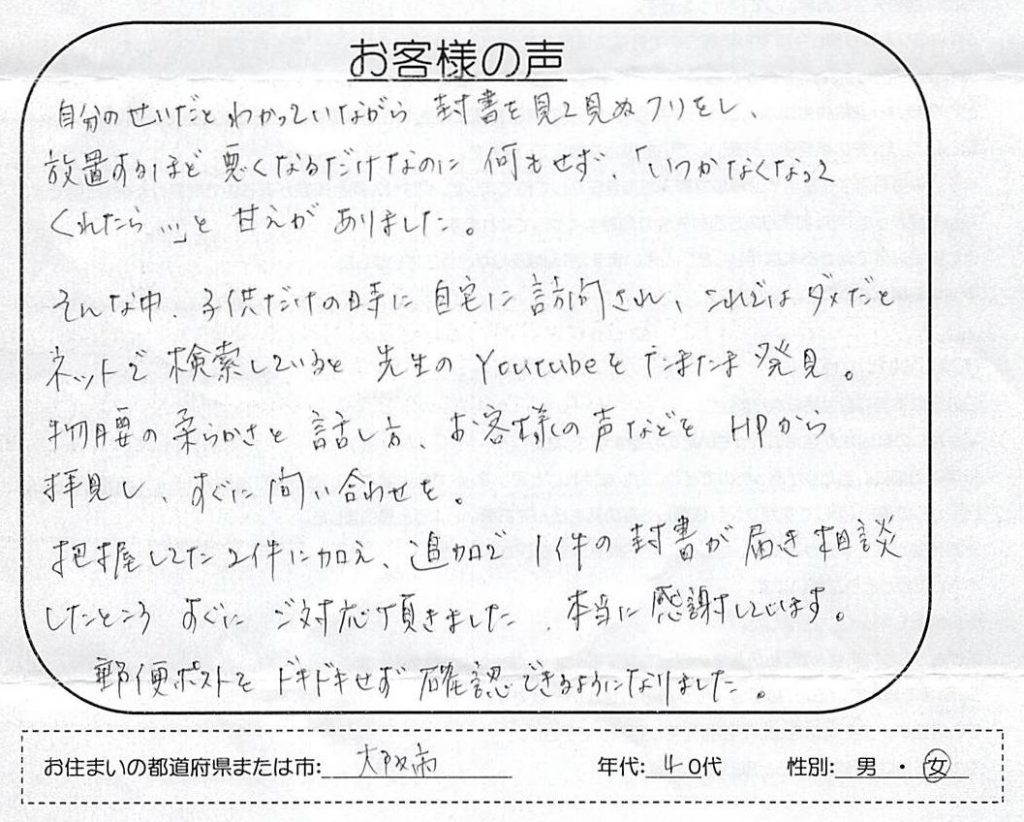 お客様の声
自分のせいだとわかっていながら 封書を見て見ぬフリをし、
放置するほど悪くなるだけなのに 何もせず、「いつかなくなって
くれたら…」と 甘えが ありました。
そんな中、子供だけの時に 自宅に訪問され、これではダメだと
ネットで 検索していると 先生の Youtubeを たまたま 発見。
物腰の柔らかさと 話し方、お客様の声などを HPから
拝見し、すぐに 問い合わせを。
把握してた2件に加え、追加で 1件の封書が 届き 相談
したところ すぐに ご対応頂きました。本当に 感謝しています。
郵便ポストを ドキドキせず 確認できるようになりました。
お住まいの都道府県または市: 大阪市 年代: 40代 性別: 男 ・ 女